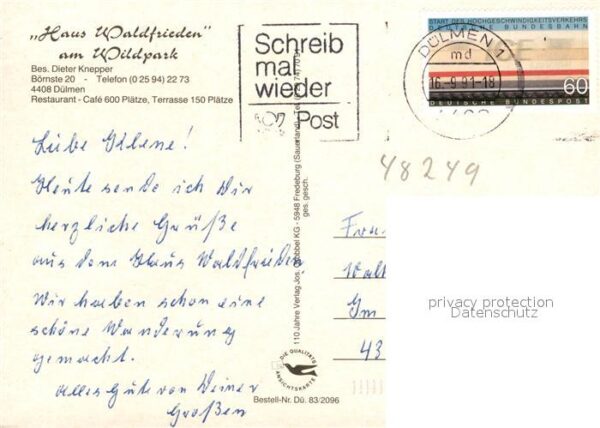 „Haus Waldfrieden"
am Wildpark
Bes. Dieter Knepper
Börnste 20 - Telefon (0 25 94) 22 73
4408 Dülmen
Restaurant - Café 600 Plätze, Terrasse 150 Plätze
Schreib
mal
wieder
Post
START DES HOCHGESCHWINDIGKEITSVERKEHRS
DEUTSCHE BUNDESBAHN
60
DEUTSCHE BUNDESPOST
DÜLMEN 1
md
16.-9.91-18
48249
Liebe
Heute sende ich Dir
herzliche Grüße
aus dem Haus Waldfrieden
Wir haben schon eine
schöne Wanderung
gemacht.
alles Gute von Deiner
Großen
110 Jahre Verlag Jos. KG - 5948 Fredeburg (Sauerland)
ges. gesch.
DIE QUALITÄTS
ANSICHTSKARTE
Bestell-Nr. Dü. 83/2096
Frau
Im
43
privacy protection
Datenschutz